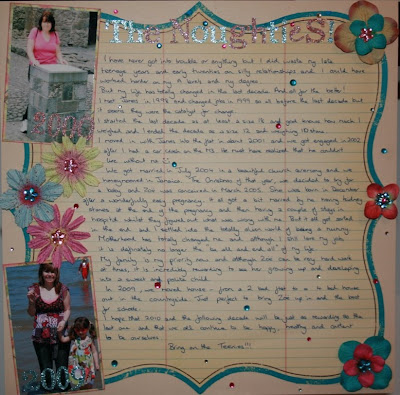 The Noughties!
I have never got into trouble or anything but I did waste my late
teenage years and early twenties on silly relationships and I could have
worked harder in my A levels and my degree.
But my life has totally changed in the last decade. And all for the better!
I met James in 1998 and changed jobs in 1999 so it's before the last decade but
I think they were the catalyst for change.
I started the last decade as at least a size 18 and god knows how much I
weighed and I ended the decade as a size 12 and weighing 10 stone.
I moved in with James into his flat in about 2001 and we got engaged in 2002
after I had a car crash on the M5. He must have realised that he couldn't
live without me
We got married in July 2004 in a beautiful church ceremony and we
honeymooned in Jamaica. The Christmas of that year we decided to try for
a baby and Zoe was conceived in March 2005. She was born in December
after a wonderfully easy pregnancy. It all got a bit marred by me having kidney
stones at the end of the pregnancy and then having a couple of stays in
hospital whilst they figured out what was wrong with me. But it all got sorted
in the end and I settled into the totally alien world of being a mummy.
Motherhood has totally changed me and although I still love my job
it is definitely no longer the be all and end all of my life.
My family is my priority now and although Zoe can be very hard work
at times, it is incredibly rewarding to see her growing up and developing
into a sweet and polite child.
In 2009, we moved house - from a 2 bed flat to a 4 bed house
out in the countryside. Just perfect to bring Zoe up in and the best
for
I hope that 2010 and the following decade will be just as rewarding as the
last one and that we all continue to be happy, healthy and content
to be ourselves
Bring on the Teenies!!!
2000
2009